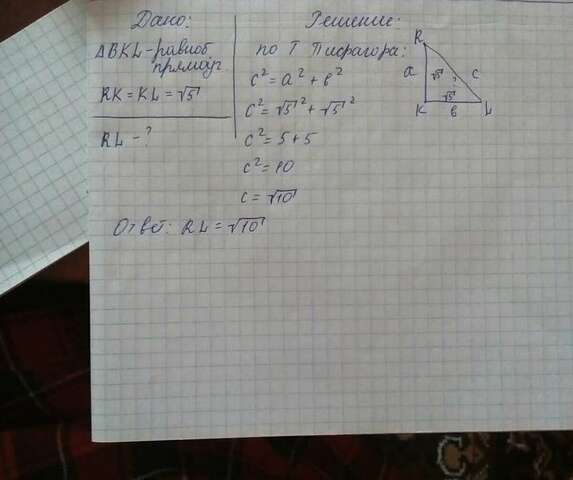 Дано:
ΔBKL - равноб
прямоуг.
RK = KL = √5
RL - ?
Решение:
по Т Пифагора:
c² = a² + b²
c² = √5² + √5²
c² = 5 + 5
c² = 10
c = √10
Ответ: RL = √10
R
a √5 ? c
√5
K b L